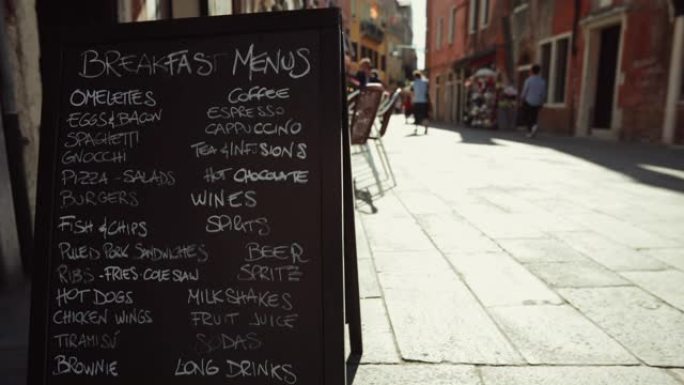 BREAKFAST MENUS
OMELETTES
EGGS & BACON
SPAGHETTI
GNOCCHI
PIZZA - SALADS
BURGERS
FISH & CHIPS
PULED PORK SANDWICHES
RIBS - FRIES - COLESLAW
HOT DOGS
CHICKEN WINGS
TIRAMISÙ
BROWNIE
COFFEE
ESPRESSO
CAPPUCCINO
TEA & INFUSIONS
HOT CHOCOLATE
WINES
SPIRTS
BEER
SPRITZ
MILKSHAKES
FRUIT JUICE
SODAS
LONG DRINKS